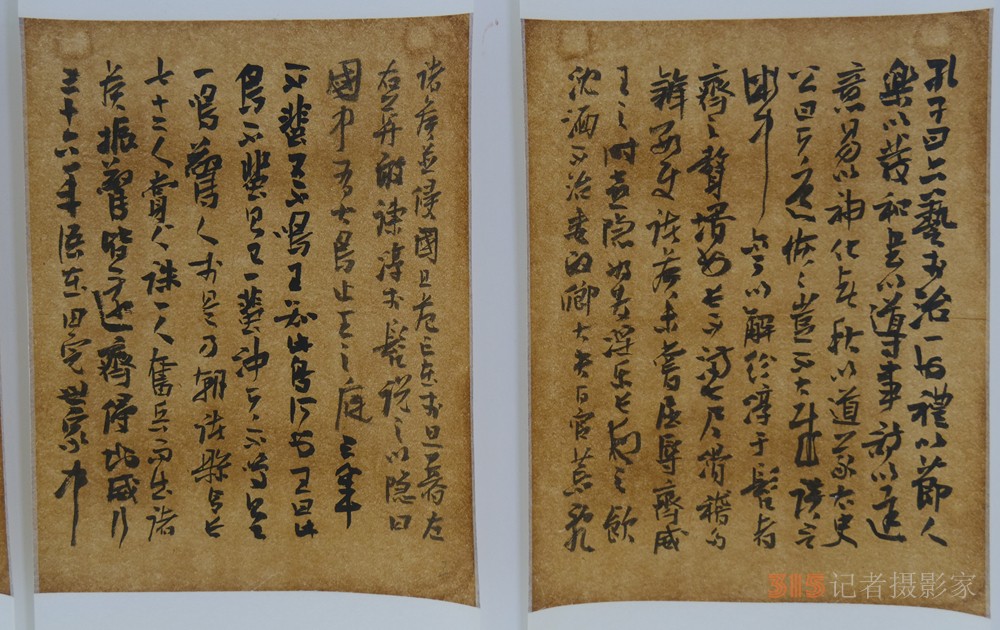 孔子曰六藝於治一也禮以節人
樂以發和書以導事詩以達
意易以神化春秋以道義太史
公曰天道恢恢豈不大哉談言
微中亦可以解紛淳于髡者
齊之贅壻也長不滿七尺滑稽多
辯數使諸侯未嘗屈辱齊威
王之時喜隱好為淫樂長夜之飲
沈湎不治委政卿大夫百官荒亂
諸侯並侵國且危亡在於旦暮左
右莫敢諫淳于髡說之以隱曰
國中有大鳥止王之庭三年
不蜚又不鳴王知此鳥何也王曰此
鳥不蜚則已一蜚沖天不鳴則已
一鳴驚人於是乃朝諸縣令長
七十二人賞一人誅一人奮兵而出諸
侯振驚皆還齊侵地威行
三十六年語在田完世家中
315记者摄影家